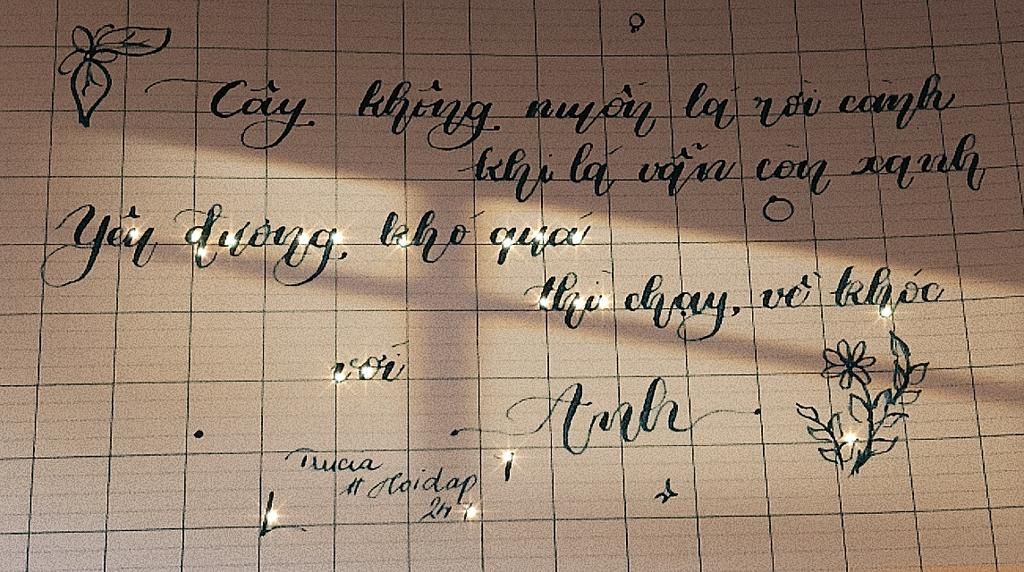 Cây không muốn lá rời cành
khi lá vẫn còn xanh
Yên đương, khó quá
thì chạy, về khóc
với
Anh
# Hoidap
24